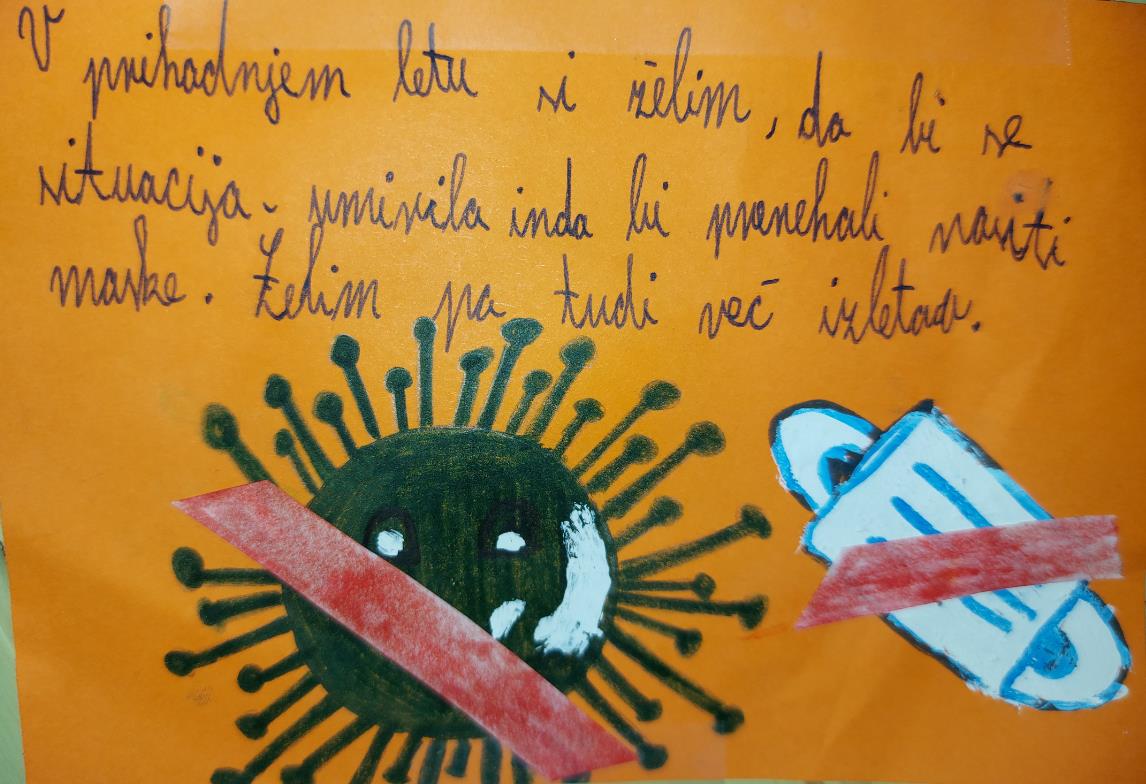 V prihodnjem letu si želim, da bi se
situacija umirila in da bi prenehali nositi
maske. Želim pa tudi več izletov.